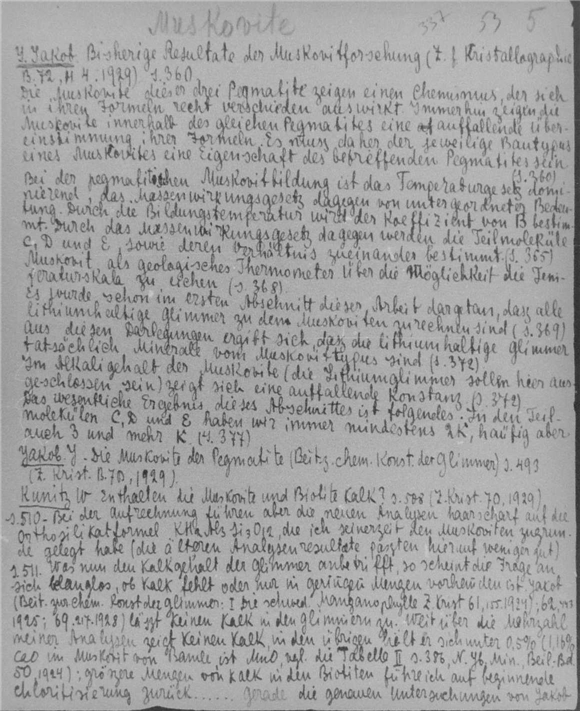 Muskovite 337 53 5
J. Jakob. Bisherige Resultate der Muskovitforschung (Z. f. Kristallographie
B.72, H 4. 1929) S.360
Die Muskovite dieser drei Pegmatite zeigen einen Chemismus, der sich
in ihren Formeln recht verschieden auswirkt. Immerhin zeigen die
Muskovite innerhalb des gleichen Pegmatites eine auffallende Über-
einstimmung ihrer Formeln. Es muss daher der jeweilige Bautypus
eines Muskovites eine Eigenschaft des betreffenden Pegmatites sein.
(S.360)
Bei der pegmatitischen Muskovitbildung ist das Temperaturgesetz domi-
nierend, das Massenwirkungsgesetz dagegen von untergeordneter Bedeu-
tung. Durch die Bildungstemperatur wird der Koeffizient von B bestim-
mt. Durch das Massenwirkungsgesetz dagegen werden die Teilmoleküle
C, D und E sowie deren Verhältnis zueinander bestimmt. (S.365)
Muskovit, als geologisches Thermometer über die Möglichkeit die Tem-
peraturskala zu eichen (S.368)
Es wurde schon im ersten Abschnitt dieser Arbeit dargetan, dasz alle
lithiumhaltige Glimmer zu den Muskoviten zu rechnen sind (S.369)
Aus diesen Darlegungen ergibt sich, dasz die lithiumhaltige Glimmer
tatsächlich Minerale vom Muskovittypus sind (S.372)
Im Alkaligehalt der Muskovite (die Lithiumglimmer sollen hier aus-
geschlossen sein) zeigt sich eine auffallende Konstanz. (S.372)
Das wesentliche Ergebnis dieses Abschnittes ist folgendes. In den Teil-
molekülen C, D und E haben wir immer mindestens 2K, häufig aber
auch 3 und mehr K. (S.377)
Jakob. J - Die Muskovite der Pegmatite (Beitz. chem. Konst. der Glimmer) S.493
(Z. Krist. B.70, 1929).
Kunitz W Enthalten die Muskovite und Biotite Kalk? S.508 (Z.Krist. 70, 1929)
S.510 - Bei der Aufrechnung führen aber die neuen Analysen haarscharf auf die
Orthosilikatformel KH₂Al₃Si₃O₁₂, die ich seinerzeit den Muskoviten zugrun-
de gelegt habe (die älteren Analysenresultate paszten hierauf weniger gut)
S.511. Was nun den Kalkgehalt der Glimmer anbetrifft, so scheint die Frage an
sich belanglos, ob Kalk fehlt oder nur in geringen Mengen vorhanden ist. Jakob
(Beit. zur chem. Konst. der Glimmer: I Die schwed. Manganophylle Z. Krist 61, 155. 1924; 62,
1925; 69. 217. 1928) läszt keinen Kalk in den Glimmern zu. Weit über die Mehrzahl
meiner Analysen zeigt keinen Kalk, in den übrigen hält er sich unter 0,5% (1.16%
CaO im Muskovit von Bamle ist MnO, vgl. die Tabelle II S.386, N. Jb. Min. Beil.-Bd.
50, 1924); gröszere Mengen von Kalk in den Biotiten führe ich auf beginnende
Chloritisierung zurück...... Gerade die genauen Untersuchungen von Jakob